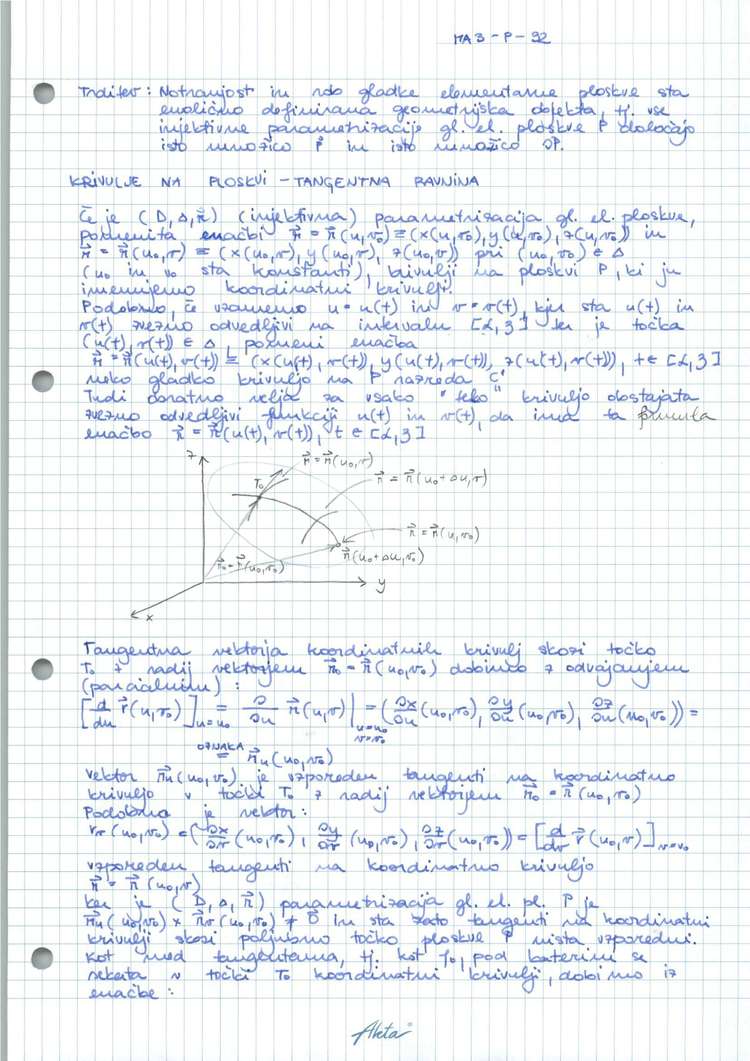 MA3-P-92
Trditev: Notranjost in rob gladke elementarne ploskve sta
enolično definirana geometrijska objekta, tj. vse
injektivne parametrizacije gl. el. ploskve P določajo
isto množico P in isto množico ∂P.
KRIVULJE NA PLOSKVI - TANGENTNA RAVNINA
Če je (D, Δ, r⃗) (injektivna) parametrizacija gl. el. ploskve,
pomenita enačbi r⃗ = r⃗(u,v₀) ≡ (x(u,v₀), y(u,v₀), z(u,v₀)) in
r⃗ = r⃗(u₀,v) ≡ (x(u₀,v), y(u₀,v), z(u₀,v)) pri (u₀,v₀) ∈ Δ
(u₀ in v₀ sta konstanti), krivulji na ploskvi P, ki ju
imenujemo koordinatni krivulji.
Podobno, če vzamemo u = u(t) in v = v(t), kjer sta u(t) in
v(t) zvezno odvedljivi na intervalu [α,β] ter je točka
(u(t), v(t)) ∈ Δ, pomeni enačba
r⃗ = r⃗(u(t), v(t)) ≡ (x(u(t), v(t)), y(u(t), v(t)), z(u(t), v(t))), t ∈ [α,β]
neko gladko krivuljo na P
Tudi obratno velja: za vsako "tako" krivuljo obstajata
zvezno odvedljivi funkciji u(t) in v(t), da ima ta
enačbo r⃗ = r⃗(u(t), v(t)), t ∈ [α,β]
z
r⃗ = r⃗(u₀,v)
T₀
r⃗ = r⃗(u₀+Δu,v)
r⃗ = r⃗(u,v₀)
r⃗(u₀+Δu,v₀)
r⃗₀ = r⃗(u₀,v₀)
y
x
Tangentna vektorja koordinatnih krivulj skozi točko
T₀ z radij vektorjem r⃗₀ = r⃗(u₀,v₀) dobimo z odvajanjem
(parcialnim):
[d/du r⃗(u,v₀)]_{u=u₀} = ∂/∂u r⃗(u,v)|_{u=u₀, v=v₀} = (∂x/∂u (u₀,v₀), ∂y/∂u (u₀,v₀), ∂z/∂u (u₀,v₀)) =
OZNAKA = r⃗u(u₀,v₀)
Vektor r⃗u(u₀,v₀) je vzporeden tangenti na koordinatno
krivuljo v točki T₀ z radij vektorjem r⃗₀ = r⃗(u₀,v₀)
Podobno je vektor:
rv(u₀,v₀) = (∂x/∂v (u₀,v₀), ∂y/∂v (u₀,v₀), ∂z/∂v (u₀,v₀)) = [d/dv r⃗(u₀,v)]_{v=v₀}
vzporeden tangenti na koordinatno krivuljo
r⃗ = r⃗(u₀,v)
Ker je (D, Δ, r⃗) parametrizacija gl. el. pl. P je
r⃗u(u₀,v₀) × r⃗v(u₀,v₀) ≠ 0⃗ in sta zato tangenti na koordinatni
krivulji skozi poljubno točko ploskve P nista vzporedni.
Kot med tangentama, tj. kot γ₀, pod katerim se
sekata v točki T₀ koordinatni krivulji, dobimo iz
enačbe:
Akta